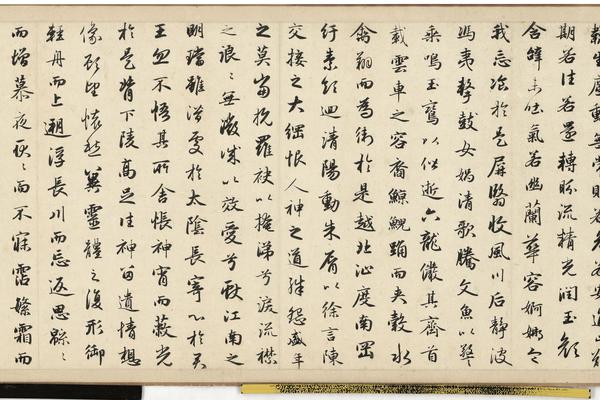 動無常則若危若安進止難
期若往若還轉眄流精光潤玉顏
含辭未吐氣若幽蘭華容婀娜令
我忘湌於是屏翳收風川后靜波
馮夷擊鼓女媧清歌騰文魚以警
乘鳴玉鸞以偕逝六龍儼其齊首
載雲車之容裔鯨鯢踊而夾轂水
禽翔而為衛於是越北沚度南岡
紆素領迴清陽動朱脣以徐言陳
交接之大綱恨人神之道殊怨盛年
之莫當抗羅袂以掩涕兮淚流襟
之浪々無微誠以效愛兮獻江南之
明璫雖潛處於太陰長寄心於君
王忽不悟其所舍悵神宵而蔽光
於是背下陵高足往神留遺情想
像顧望懷愁冀靈體之復形御
輕舟而上遡浮長川而忘返思緜々
而增慕夜耿々而不寐霑繁霜而